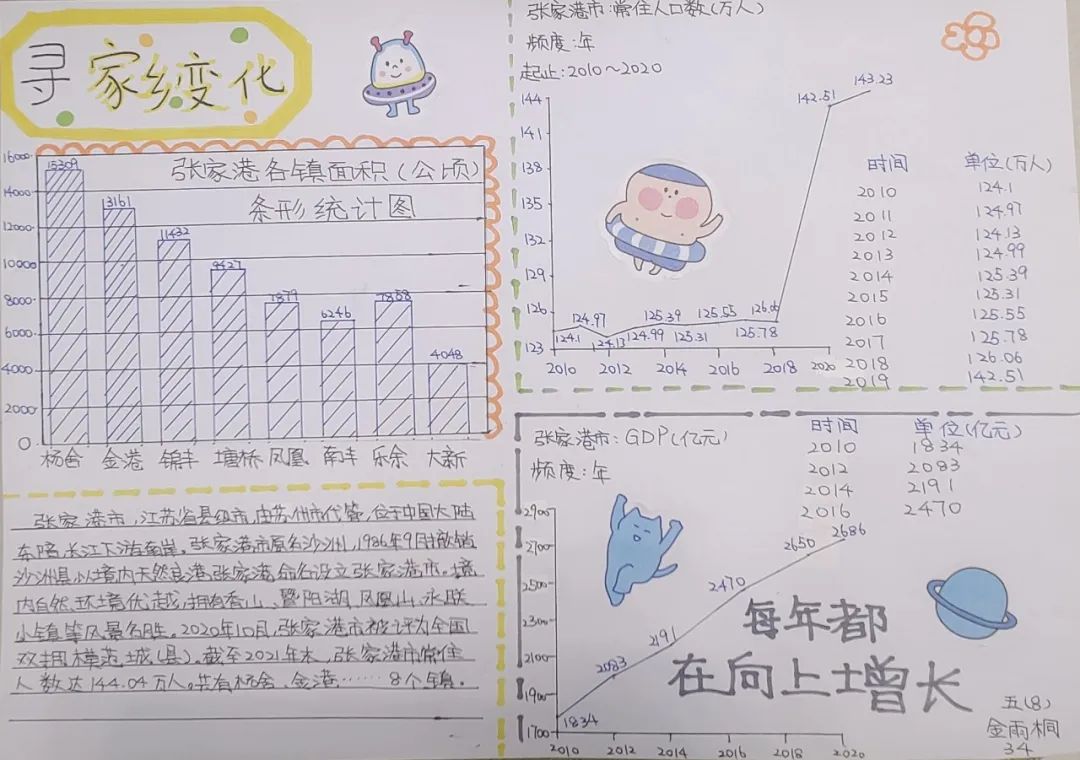 寻家乡变化
张家港各镇面积(公顷)
条形统计图
16000
14000
12000
10000
8000
6000
4000
2000
0
15309
13161
11432
9427
7879
6246
7858
4048
杨舍 金港 锦丰 塘桥 凤凰 南丰 乐余 大新
张家港市,江苏省县级市,由苏州市代管,位于中国大陆
东陪,长江下游南岸。张家港市原名沙洲,1986年9月撤销
沙洲县,以境内天然良港张家港命名设立张家港市。境
内自然环境优越,拥有香山、暨阳湖、凤凰山、永联
小镇等风景名胜。2020年10月,张家港市被评为全国
双拥模范城(县)。截至2021年末,张家港市常住
人数达144.04万人。共有杨舍、金港……8个镇。
张家港市:常住人口数(万人)
频度:年
起止:2010~2020
144
141
138
135
132
129
126
123
124.1
124.97
124.13
124.99
125.39
125.31
125.55
125.78
126.06
142.51
143.23
2010 2012 2014 2016 2018 2020
时间 单位(万人)
2010 124.1
2011 124.97
2012 124.13
2013 124.99
2014 125.39
2015 125.31
2016 125.55
2017 125.78
2018 126.06
2019 142.51
张家港市:GDP(亿元)
频度:年
时间 单位(亿元)
2010 1834
2012 2083
2014 2191
2016 2470
2900
2700
2500
2300
2100
1900
1700
1834
2083
2191
2470
2650
2686
2010 2012 2014 2016 2018 2020
每年都
在向上增长
五(8)
金雨桐
34